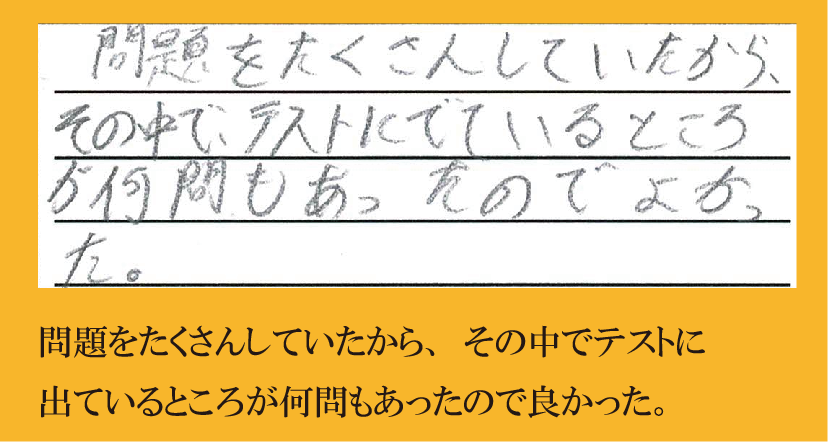 問題をたくさんしていたから、
その中で、テストにでているところ
が何問もあったのでよかっ
た。
問題をたくさんしていたから、その中でテストに
出ているところが何問もあったので良かった。